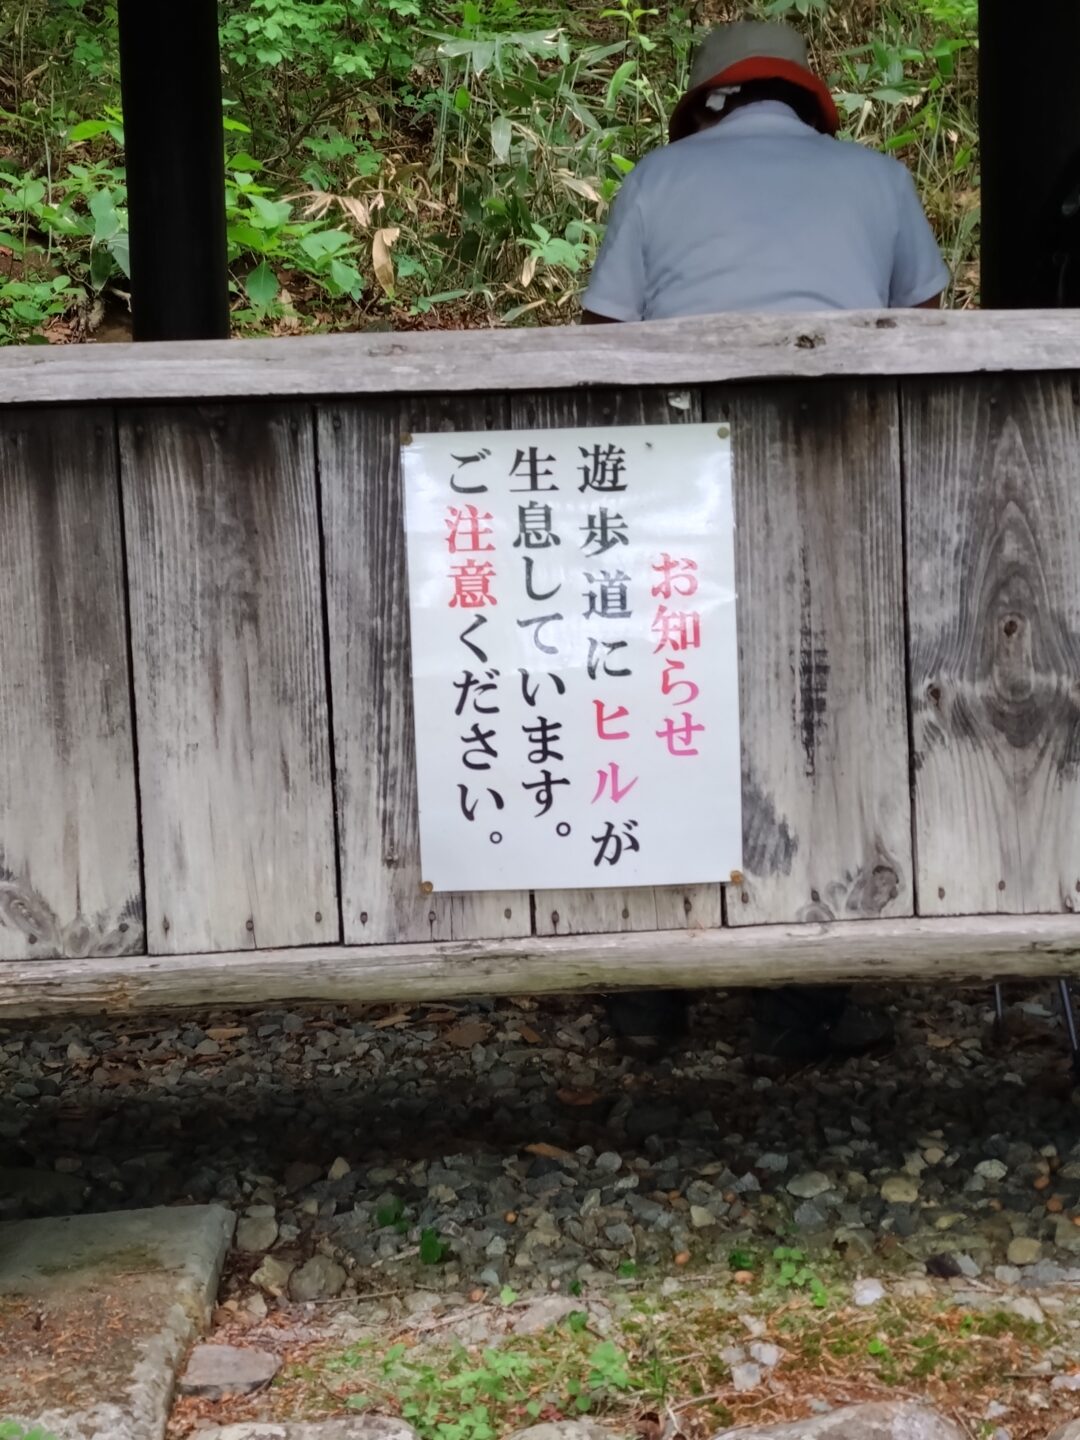 お知らせ
遊歩道にヒルが
生息しています。
ご注意ください。